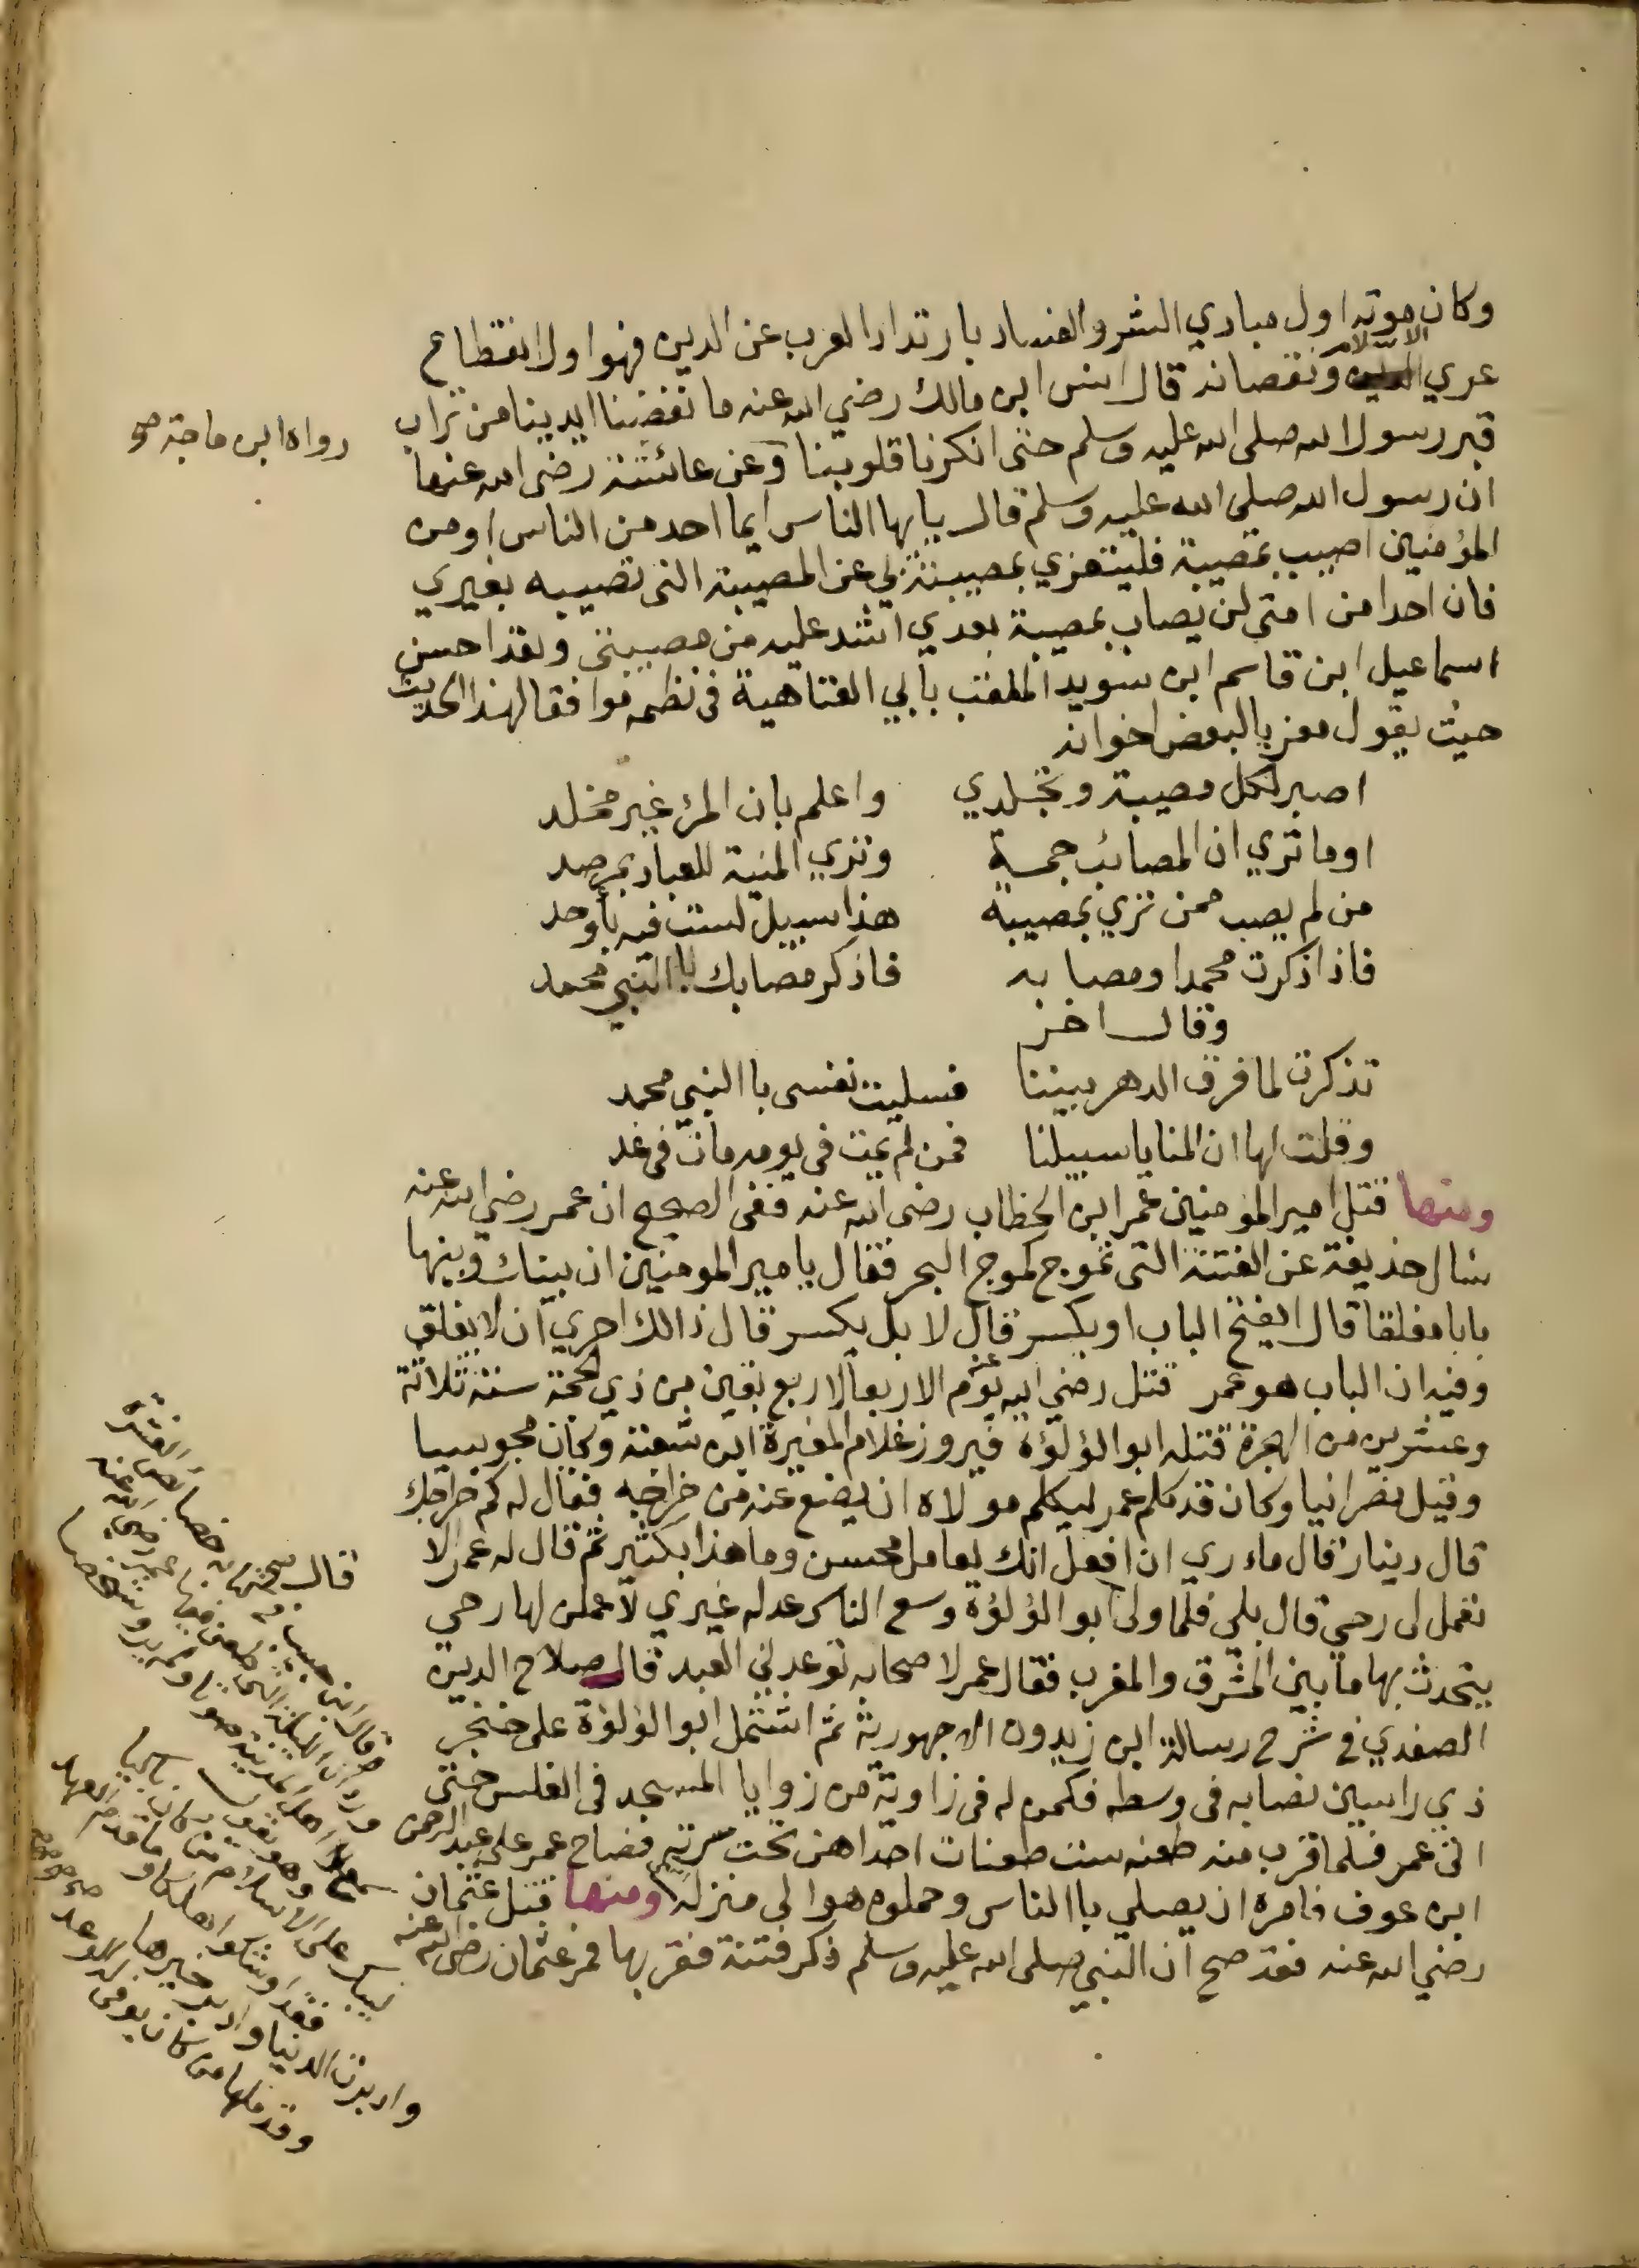 وكان موته اول مبادي الشر والفساد بارتداد العرب عن الدين فهو اول انقطاع
عري الاسلام ونقصانه قال انس ابن مالك رضي الله عنه ما نفضنا ايدينا من تراب
قبر رسول الله صلى الله عليه وسلم حتى انكرنا قلوبنا وعن عائشة رضى الله عنها
رواه ابن ماجة صح
ان رسول الله صلى الله عليه وسلم قال يايها الناس ايما احد من الناس او من
المؤمنين اصيب بمصيبة فليتعزي بمصيبته بي عن المصيبة التى تصيبه بغيري
فان احدا من امتى لن يصاب بمصيبة بعدي اشد عليه من مصيبتى ولقد احسن
اسماعيل ابن قاسم ابن سويد الملقب بابي العتاهية في نظمه موافقا لهذا الحديث
حيث يقول معزيا لبعض اخوانه
اصبر لكل مصيبة وتجلدي واعلم بان المرئ غير مخلد
اوما تري ان المصائب جمة وتري المنية للعباد بمرصد
من لم يصب ممن تري بمصيبة هذا سبيل لست فيه بأوحد
فاذا ذكرت محمدا ومصابه فاذكر مصابك باالنبي محمد
وقال اخر
تذكرت لما فرق الدهر بيننا فسليت نفسى باالنبي محمد
وقلت لها ان المنايا سبيلنا فمن لم يمت في يومه مات في غد
ومنها قتل امير المؤمنين عمر ابن الخطاب رضى الله عنه ففى الصحيح ان عمر رضي الله عنه
سال حذيفة عن الفتنة التى تموج كموج البحر فقال يامير المومنين ان بينك وبينها
بابا مغلقا قال ايفتح الباب او يكسر قال لا بل يكسر قال ذالك احري ان لا يغلق
وفيه ان الباب هو عمر قتل رضي الله عنه يوم الاربعا لاربع بقين من ذي الحجة سنة ثلاثة
وعشرين من الهجرة قتله ابو الؤلؤة فيروز غلام المغيرة ابن شعبة وكان مجوسيا
وقيل نصرانيا وكان قد كلم عمر ليكلم مولاه ان يضع عنه من خراجه فقال له كم خراجك
قال دينار قال ماءري ان افعل انك لعامل محسن وما هذا بكثير ثم قال له عمر الا
تعمل لى رحي قال بلي فلما ولى ابو الؤلؤة وسع الناس عدله غيري لاعملن لها رحي
يتحدث بها ما بين المشرق والمغرب فقال عمر لاصحابه توعدني العبد قال صلاح الدين
الصفدي في شرح رسالة ابن زيدون الجهورية ثم اشتمل ابو الؤلؤة على خنجر
ذي راسين نصابه في وسطه فكمن له في زاوية من زوايا المسجد في الغلس حتى
اتى عمر فلما قرب منه طعنه ست طعنات احداهن تحت سرته فصاح عمر على عبد الرحمن
ابن عوف فامره ان يصلي باالناس وحملوه هو الى منزله ومنها قتل عثمان
رضي الله عنه فقد صح ان النبي صلى الله عليه وسلم ذكر فتنة فقربها فمر عثمان رضى الله عنه
عمر رضي الله عنه
سمع اهل المدينة صوتا ولم يرو شخصا
وهو يقول
ليبك على الاسلام من كان باكيا
فقد اوشكوا هلكا وما قدم العهد
وادبرت الدنيا وادبر خيرها
وقد ملها من كان يوقن بالوعد